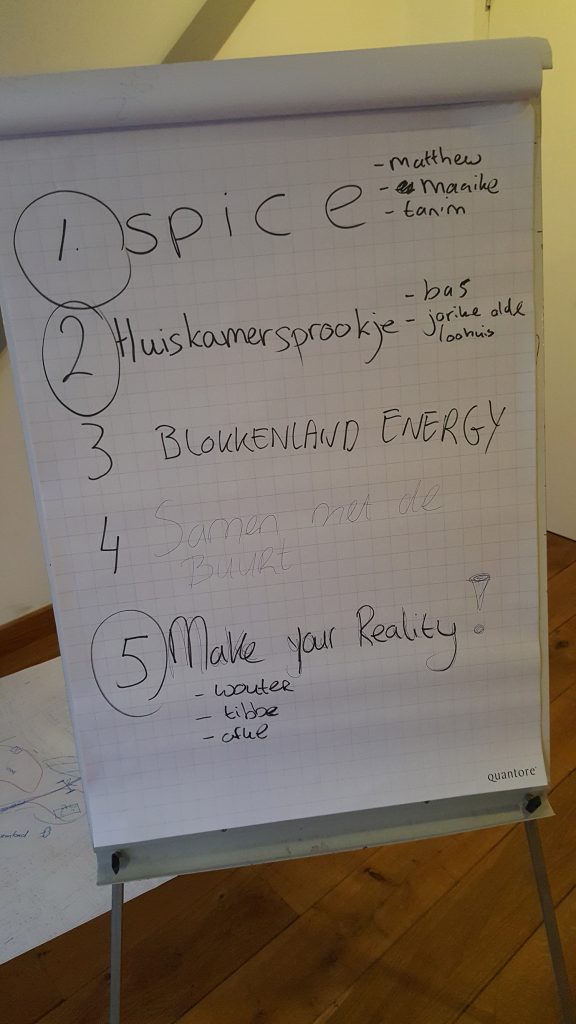 - matthew
1. spice - maaike
- tanim
- bas
2 Huiskamersprookje - jorike olde
loohuis
3 BLOKKENLAND ENERGY
4 Samen met de
BUURt
5 Make your Reality!
- wouter
- tibbe
- afke
quantore